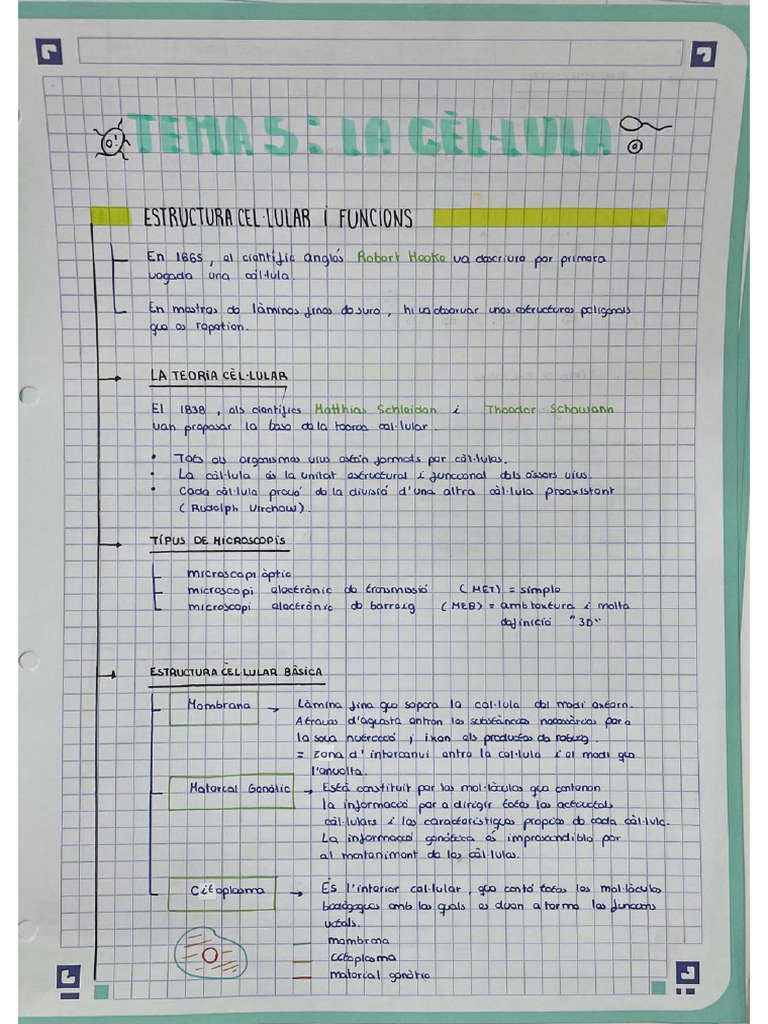 TEMA 5: LA CÈL·LULA
ESTRUCTURA CEL·LULAR i FUNCIONS
En 1865, el científic anglés Robert Hooke va descriure per primera
vegada una cèl·lula.
En mostres de làmines fines de suro, hi va observar unes estructures poligonals
que es repetien.
LA TEORIA CÈL·LULAR
El 1838, els científics Matthias Schleiden i Theodor Schowann
van proposar la base de la teoria cel·lular.
• Tots els organismes vius estàn formats per cèl·lules.
• La cèl·lula és la unitat estructural i funcional dels éssers vius.
• Cada cèl·lula prové de la divisió d'una altra cèl·lula preexistent
(Rudolph Virchow).
TÍPUS DE MICROSCOPIS
microscopi òptic
microscopi electrònic de transmesió (MET) = simple
microscopi electrònic de barreig (MEB) = amb textura i molta
definició "3D"
ESTRUCTURA CEL·LULAR BÀSICA
Membrana → Làmina fina que separa la cèl·lula del medi extern.
Atraves d'aquesta entren les substàncies necessàries per a
la seua nutrecció, i ixen els productes de rebuig.
= Zona d'intercanvi entre la cèl·lula i el medi que
l'envolta.
Material Genètic → Està constituit per les mol·lècules que contenen
la informació per a dirigir totes les activitats
cèl·lulars i les característiques propies de cada cèl·lula.
La informació genètica és imprescindible per
al manteniment de les cèl·lules.
Citoplasma → És l'interior cel·lular, que conté totes les mol·lècules
amb les quals es duen a terme les funcions
vitals.
membrana
citoplasma
material genètic